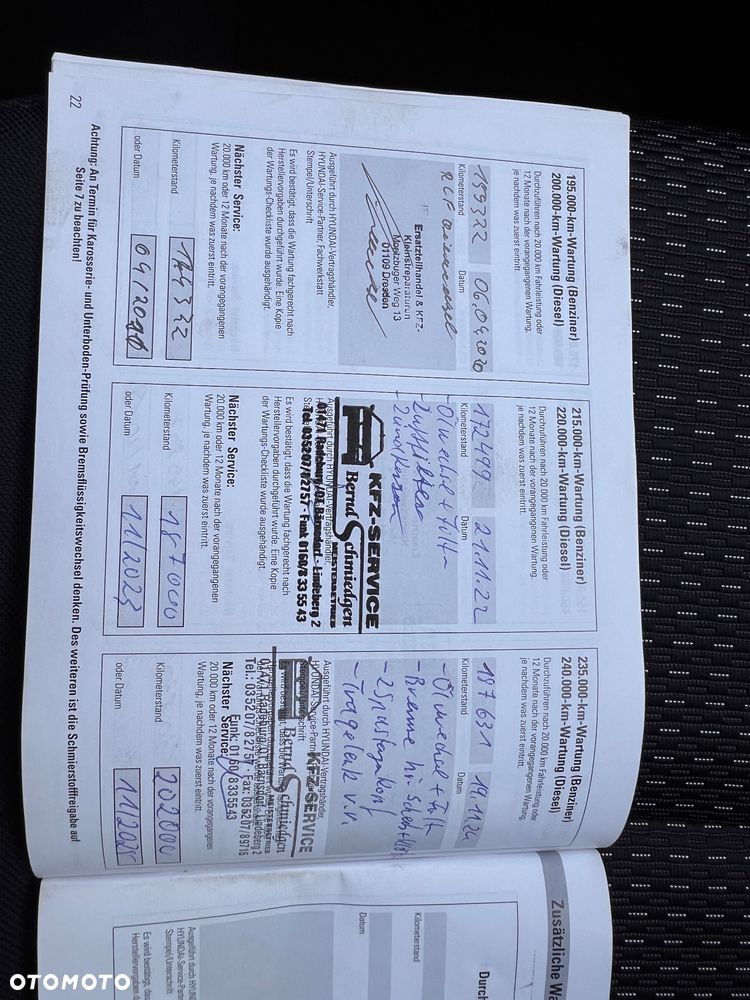 195.000-km-Wartung (Benziner)
200.000-km-Wartung (Diesel)
Durchzuführen nach 20.000 km Fahrleistung oder
12 Monate nach der vorangegangenen Wartung,
je nachdem was zuerst eintritt.
159322
06.04.2020
Kilometerstand
Datum
Ersatzteilhandel & KFZ-
Kleinstreparaturen
Magazbuger Weg 13
01109 Dresden
Ausgeführt durch HYUNDAI-Vertragshändler,
HYUNDAI-Service-Partner, Fachwerkstatt
Stempel/Unterschrift
Es wird bestätigt, dass die Wartung fachgerecht nach
Herstellervorgaben durchgeführt wurde. Eine Kopie
der Wartungs-Checkliste wurde ausgehändigt.
Nächster Service:
20.000 km oder 12 Monate nach der vorangegangenen
Wartung, je nachdem was zuerst eintritt.
Kilometerstand
174322
oder Datum
215.000-km-Wartung (Benziner)
220.000-km-Wartung (Diesel)
Durchzuführen nach 20.000 km Fahrleistung oder
12 Monate nach der vorangegangenen Wartung,
je nachdem was zuerst eintritt.
172499
21.11.22
Kilometerstand
Datum
- Ölwechsel + Filter
- Zündkerzen
KFZ-SERVICE
MEISTERBETRIEB
Bernd Schmiedgen
Ausgeführt durch HYUNDAI-Vertragshändler,
01471 Radeburg/OT Bärnsdorf - Lindeberg 2
Tel.: 035207/82757 - Funk 0160/8 33 55 43
Es wird bestätigt, dass die Wartung fachgerecht nach
Herstellervorgaben durchgeführt wurde. Eine Kopie
der Wartungs-Checkliste wurde ausgehändigt.
Nächster Service:
20.000 km oder 12 Monate nach der vorangegangenen
Wartung, je nachdem was zuerst eintritt.
Kilometerstand
187000
oder Datum
11/2023
235.000-km-Wartung (Benziner)
240.000-km-Wartung (Diesel)
Durchzuführen nach 20.000 km Fahrleistung oder
12 Monate nach der vorangegangenen Wartung,
je nachdem was zuerst eintritt.
187631
19.11.24
Kilometerstand
Datum
- Ölwechsel + Filter
- Bremse hi
- 2 Spurstangenkopf
- Traggelenk
Ausgeführt durch HYUNDAI-Vertragshändler,
HYUNDAI-Service-Partner
KFZ-SERVICE
MEISTERBETRIEB
Bernd Schmiedgen
01471 Radeburg/Bärnsdorf, Lindeberg 2
Tel.: 035207/82757 - Fax: 035207/89716
Funk: 0160/8335543
Nächster Service:
20.000 km oder 12 Monate nach der vorangegangenen
Wartung, je nachdem was zuerst eintritt.
Kilometerstand
202000
oder Datum
11/2025
Achtung: An Termin für Karosserie- und Unterboden-Prüfung sowie Bremsflüssigkeitswechsel denken. Des weiteren ist die Schmierstofffreigabe auf
Seite 7 zu beachten!
22
Zusätzliche Wa
Durch
Kilometerstand
Datum
Ausgeführt durch HYUNDAI
HYUNDAI-Service-Partner
Stempel/Unterschrift
Es wird bestätigt, das
Herstellervorgaben d
OTOMOTO